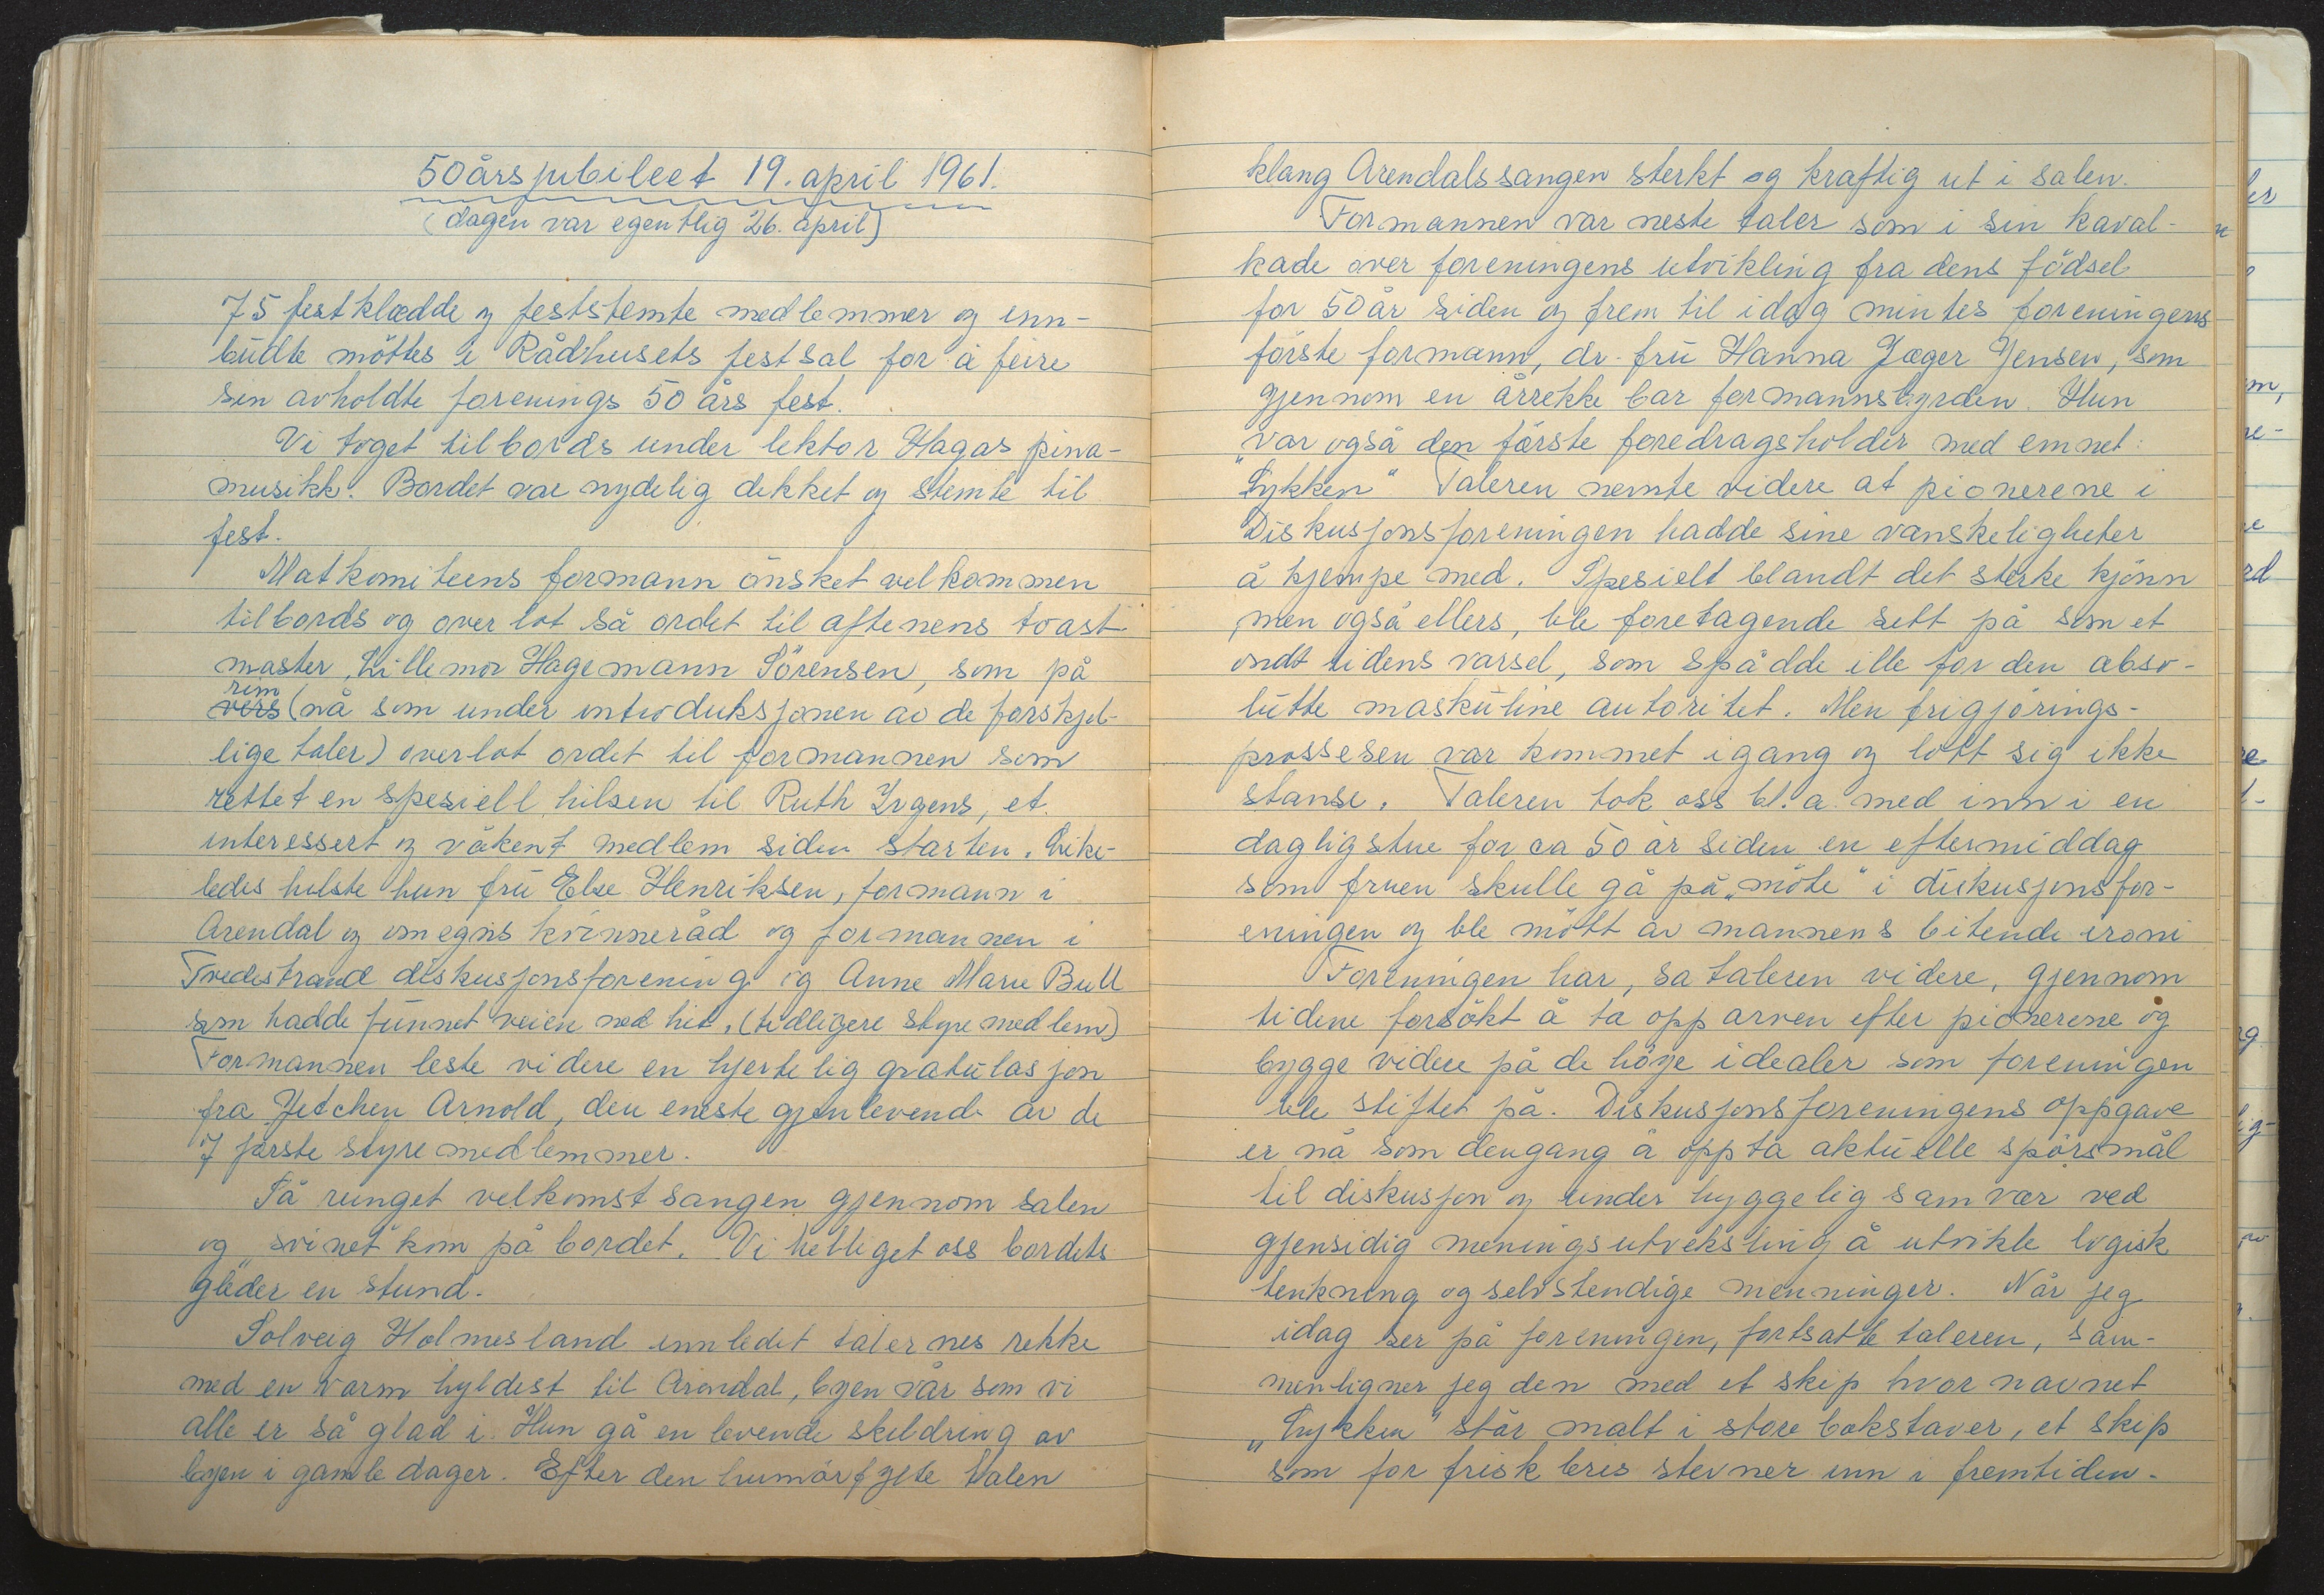 50årsjubileet 19. april 1961.
(dagen var egentlig 26. april)
75 festklædde og feststemte medlemmer og inn-
budte möttes i Rådhusets festsal for å feire
sin avholdte forenings 50 års fest.
Vi toget tilbords under lektor Hagas pina-
musikk. Bordet var nydelig dekket og stemte til
fest.
Matkomiteens formann önsket velkommen
tilbords og overlot så ordet til aftenens toast
master, Lillemor Hagemann Sörensen, som på
rim
vers (nå som under introduksjonen av de forskjel-
lige taler) overlot ordet til formannen som
rettet en spesiell hilsen til Ruth Irgens, et
interessert og våkent medlem siden starten. Like-
ledes hilste hun fru Else Henriksen, formann i
Arendal og omegns kvinneråd og formannen i
Tvedestrand diskusjonsforening og Anne Marie Bull
som hadde funnet veien ned hit, (tidligere styremedlem)
Formannen leste videre en hjertelig gratulasjon
fra Jetchen Arnold, den eneste gjenlevende av de
7 første styremedlemmer.
Så runget velkomstsangen gjennom salen
og „svinet kom på bordet. Vi helliget oss bordets
gleder en stund.
Solveig Holmesland innledet talernes rekke
med en varm hyldest til Arendal, byen vår som vi
alle er så glad i. Hun gå en levende skildring av
byen i gamle dager. Efter den humörfylte talen
klang Arendalssangen sterkt og kraftig ut i salen.
Formannen var neste taler som i sin kaval-
kade over foreningens utvikling fra dens födsel
for 50 år siden og frem til idag mintes foreningens
förste formann, dr. fru Hanna Jæger Jensen, som
gjennom en årrekke bar formannsbyrden. Hun
var også den förste foredragsholder med emnet:
„Lykken“ Taleren nemte videre at pionerene i
Diskusjonsforeningen hadde sine vanskeligheter
å kjempe med. Spesielt blandt det sterke kjönn
men også ellers, ble foretagende sett på som et
ondt tidens varsel, som spådde ille for den abso-
lutte maskuline autoritet. Men frigjörings-
prossesen var kommet igang og lott sig ikke
stanse. Taleren tok oss bl.a. med inn i en
dagligstue for ca 50 år siden en eftermiddag
som fruen skulle gå på „möte“ i diskusjonsfor-
eningen og ble mött av mannens bitende ironi
Foreningen har, sa taleren videre, gjennom
tidene forsökt å ta opp arven efter pionerene og
bygge videre på de höye idealer som foreningen
ble stiftet på. Diskusjonsforeningens oppgave
er nå som dengang å oppta aktuelle spörsmål
til diskusjon og under hyggelig samvær ved
gjensidig meningsutveksling å utvikle logisk
tenkning og selvstendige menninger. Når jeg
idag ser på foreningen, fortsatte taleren, sam-
menligner jeg den med et skip hvor navnet
„Lykken“ står malt i store bokstaver, et skip
som for frisk bris stevner inn i fremtiden.